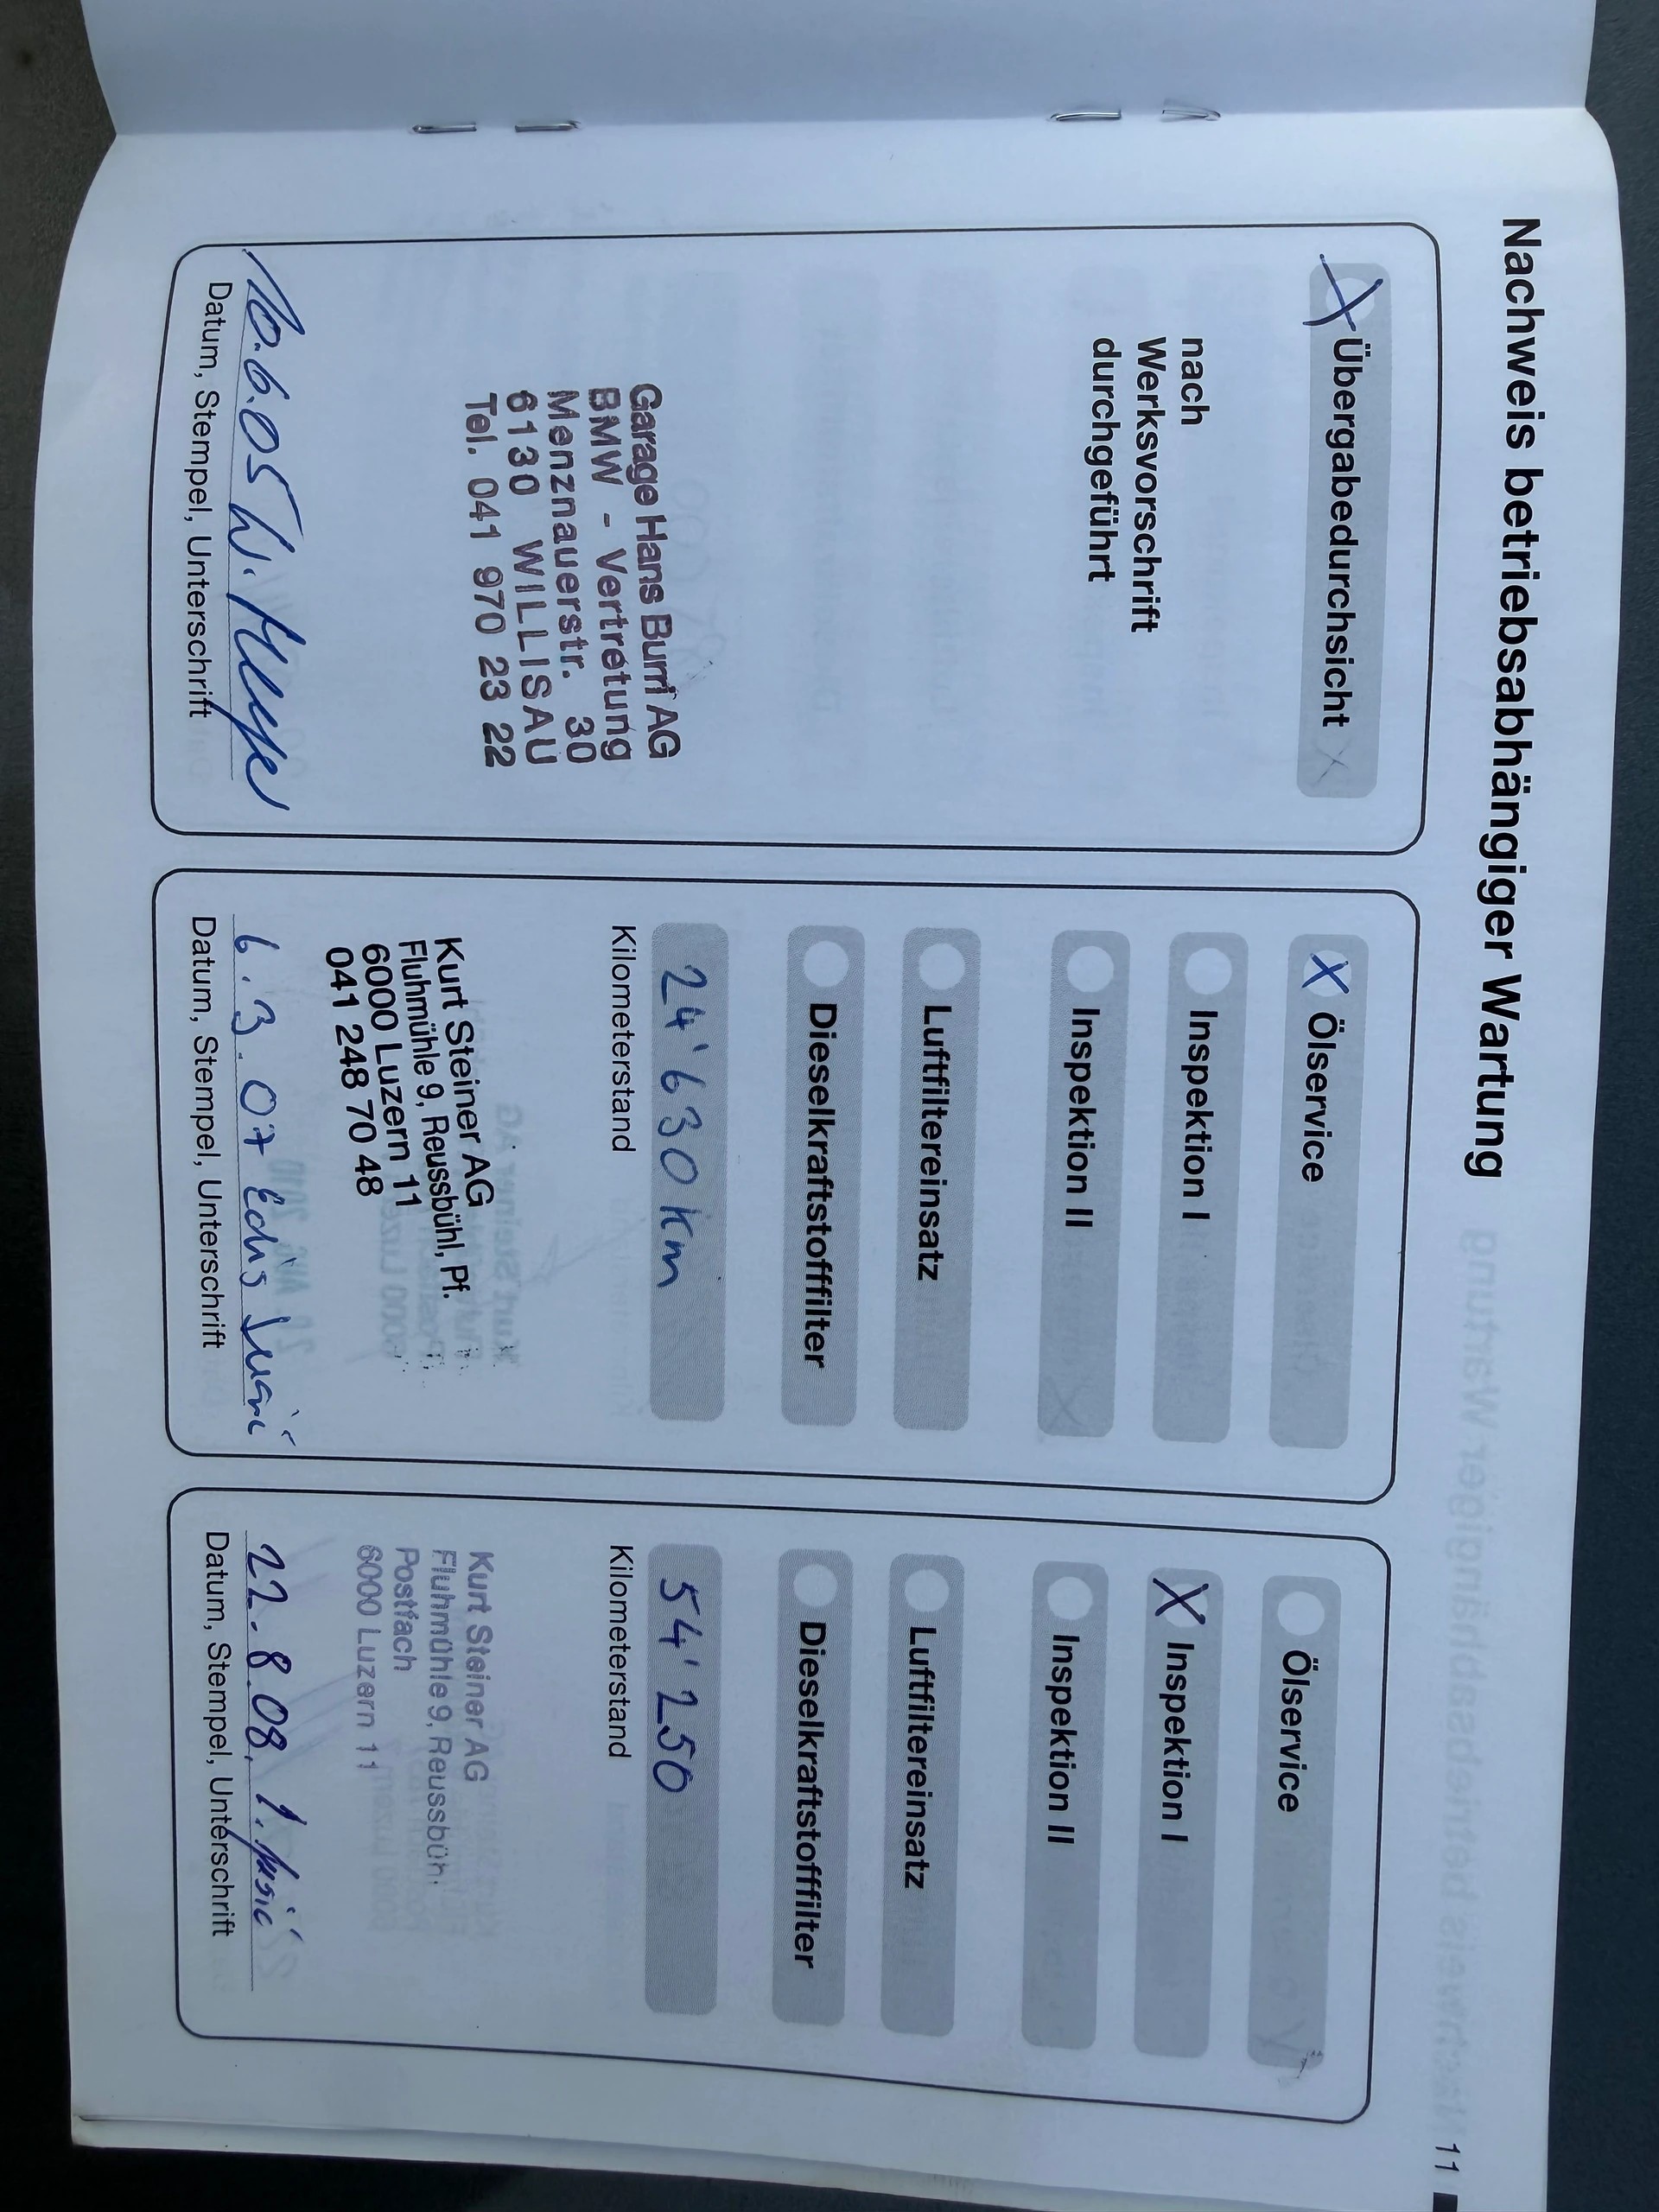 Nachweis betriebsabhängiger Wartung
11
X Übergabedurchsicht
nach
Werksvorschrift
durchgeführt
Garage Hans Burri AG
BMW - Vertretung
Menznauerstr. 30
6130 WILLISAU
Tel. 041 970 23 22
10.6.05
Datum, Stempel, Unterschrift
X Ölservice
Inspektion I
Inspektion II
Luftfiltereinsatz
Dieselkraftstofffilter
24'630 km
Kilometerstand
Kurt Steiner AG
Fluhmühle 9, Reussbühl, Pf.
6000 Luzern 11
041 248 70 48
6.3.07
Datum, Stempel, Unterschrift
Ölservice
X Inspektion I
Inspektion II
Luftfiltereinsatz
Dieselkraftstofffilter
54'250
Kilometerstand
Kurt Steiner AG
Fluhmühle 9, Reussbühl
Postfach
6000 Luzern 11
22.8.08
Datum, Stempel, Unterschrift